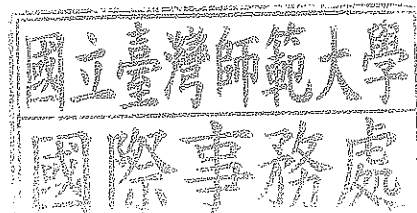 國立臺灣師範大學
國際事務處